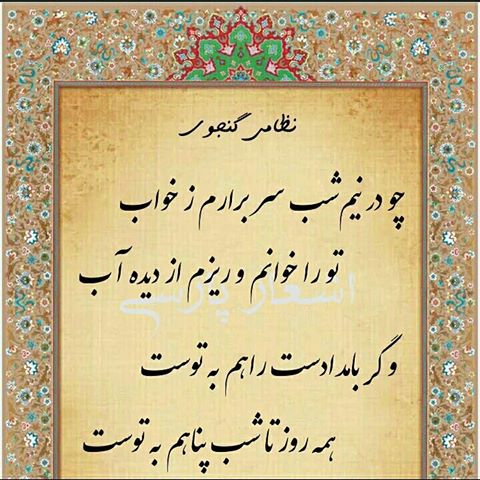 نظامی گنجوی
چو در نیم شب سر برارم ز خواب
تو را خوانم و ریزم از دیده آب
اشعار پارسی
و گر بامدادست راهم به توست
همه روز تا شب پناهم به توست